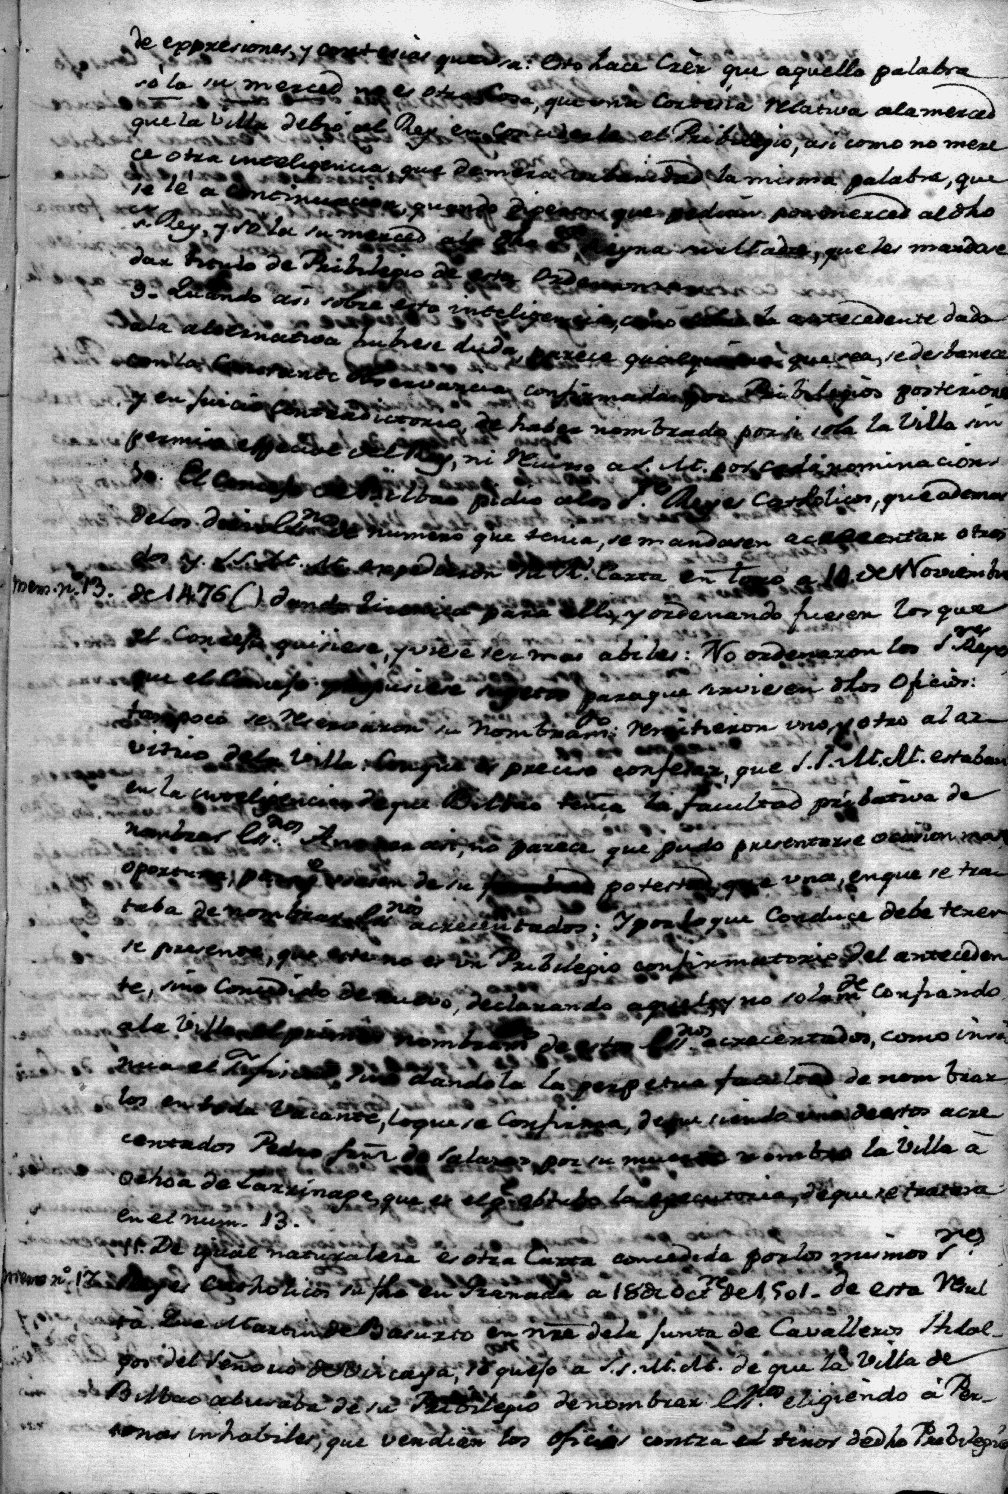 de expresiones, y cortesias que usa: Esto hace creer que aquella palabra
so la su merced no es otra cosa, que una cortesia relativa ala merced
que la Villa debió al Rey en concederla el Pribilegio, asi como no mere
ce otra inteligencia, que de mera urbanidad la misma palabra, que
se lé a continuacion, quando dicen que pedian por merced al dho
s. Rey, y so la su merced a la dha Reyna su Madre, que les mandase
dar titulo de Pribilegio de esta Ordenanza
9. Quando asi sobre esto inteligencia, como sobre la antecedente dada
ala alternativa hubiese duda, parece qualquiera que sea, se desbanece
con la constante observancia confirmada por Pribilegios posteriores
y en juicio contradictorio, de haber nombrado por si sola la Villa sin
permiso especial del Rey, ni recurso a S. M. por cada nominacion
10. El Concejo de Bilbao pidio alos S.res Reyes Catholicos, que ademas
delos Es.nos de numero que tenia, se mandasen acrecentar otros
dos y S.S. M. M. expedieron su R. Carta en Toro a 10 de Noviembre
Mem. n. 13.
de 1476 () dando licencia para ello, y ordenando fuesen los que
el Concejo quisiese, y viese ser mas abiles: No ordenaron los S.res Reyes
que el Concejo propusiese sugetos para que sirviesen dhos Oficios:
tampoco se reservaron su nombram.to: remitieron uno, y otro al ar
vitrio dela Villa: Con que es preciso confesar, que S.S. M. M. estaban
en la inteligencia de que Bilbao tenia la facultad pribativa de
nombrar Es.nos A no ser asi, no parece que pudo presentarse ocasion mas
oportuna, para que usasen de su potestad, que una, en que se tra
taba de nombrar Es.nos acrecentados; Y por lo que conduce debe tener
se presente, que este no es un Pribilegio confirmatorio del anteceden
te, sino concedido de nuevo, declarando aquel, y no solam.te confiando
ala Villa el primer nombram.to de estos Es.nos acrecentados, como insi
nua el Fiscal, sino dandola la perpetua facultad de nombrar
los en toda vacante, lo que se confirma, de que siendo uno de estos acre
centados Pedro frz de Salazar, por su muerte nombró la Villa à
Ochoa de Larrinaga, que es el q.e obtubo la egecutoria, de que se tratara
en el num. 13.
11. De igual naturaleza es otra Carta concedida por los mismos S.res
Mem. n.º 17.
Reyes Catholicos su fha en Granada a 18 de Oct.re de 1501. de esta resul
ta Que Martin de Basurto en nre dela Junta de Cavalleros Hidal-
gos del Señorio de Vizcaya, se quejo a S.S. M. M. de que la Villa de
Bilbao abusaba de su Pribilegio de nombrar Es.nos eligiendo à Per-
sonas inhabiles, que vendian los oficios contra el tenor de dho Pribilegio